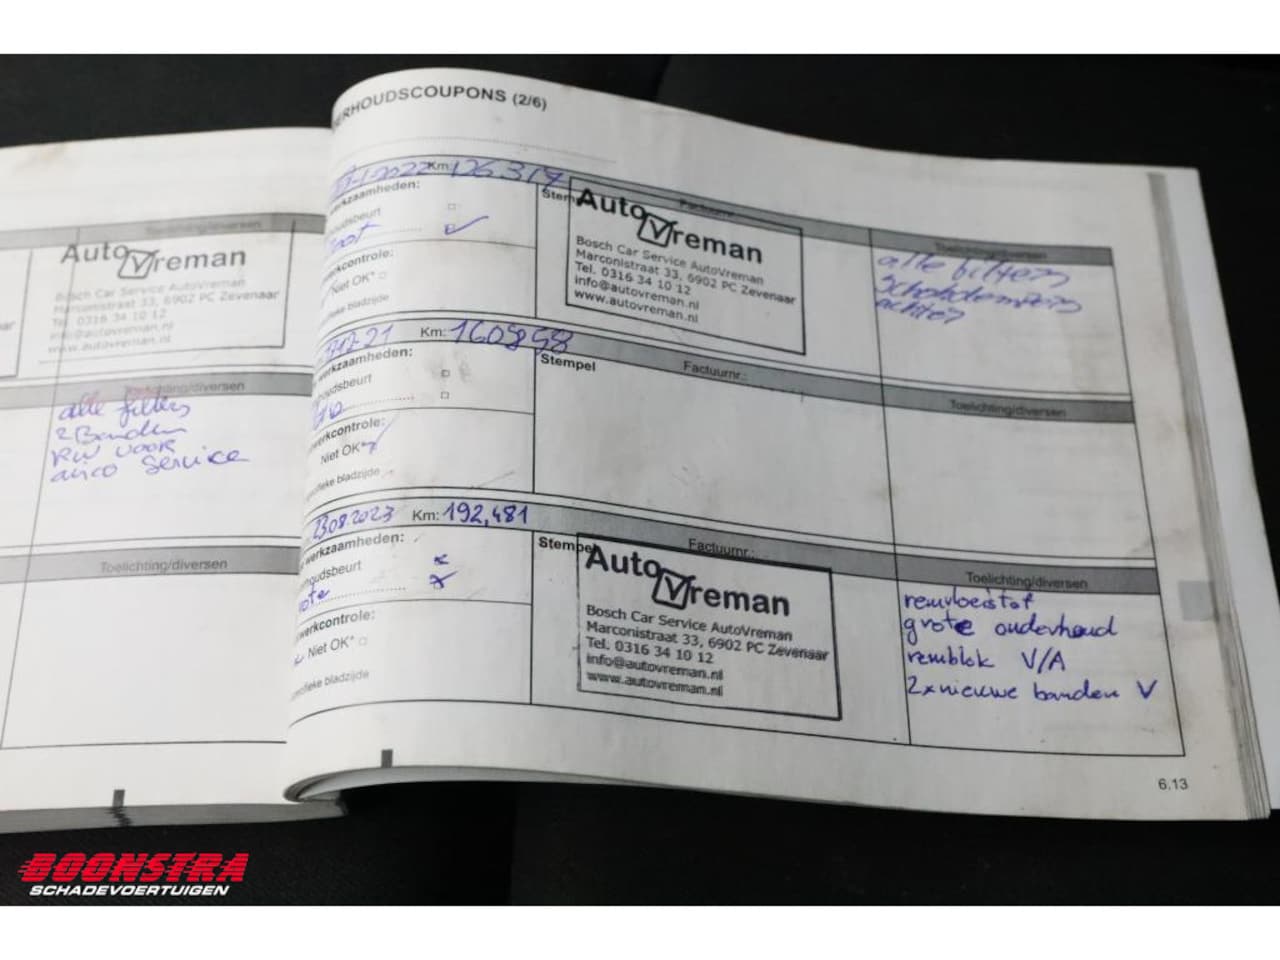 Toelichting/diversen
Auto Vreman
Bosch Car Service AutoVreman
Marconistraat 33, 6902 PC Zevenaar
Tel. 0316 34 10 12
info@autovreman.nl
www.autovreman.nl
Toelichting/diversen
alle filters
2 Banden
RW VOOR
airco service
Toelichting/diversen
ERHOUDSCOUPONS (2/6)
1-2022 Km: 126.317
werkzaamheden:
houdsbeurt
Groot
werkcontrole:
Niet OK*
specifieke bladzijde
Stempel
Factuurnr.:
Auto Vreman
Bosch Car Service AutoVreman
Marconistraat 33, 6902 PC Zevenaar
Tel. 0316 34 10 12
info@autovreman.nl
www.autovreman.nl
Toelichting/diversen
alle filters
schokdempers
achter
12-21 Km: 160898
werkzaamheden:
houdsbeurt
werkcontrole:
Niet OK*
specifieke bladzijde
Stempel
Factuurnr.:
Toelichting/diversen
23.08.2023 Km: 192,481
werkzaamheden:
houdsbeurt
ote
werkcontrole:
Niet OK*
specifieke bladzijde
Stempel
Factuurnr.:
Auto Vreman
Bosch Car Service AutoVreman
Marconistraat 33, 6902 PC Zevenaar
Tel. 0316 34 10 12
info@autovreman.nl
www.autovreman.nl
Toelichting/diversen
remvloeistof
grote onderhoud
remblok V/A
2x nieuwe banden V
6.13
BOONSTRA
SCHADEVOERTUIGEN